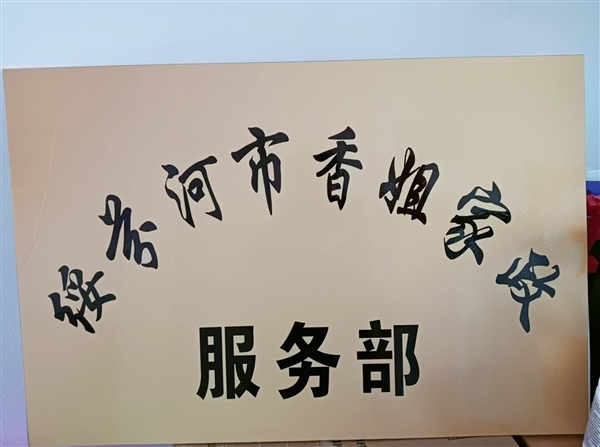 绥芬河市香姐家政
服务部